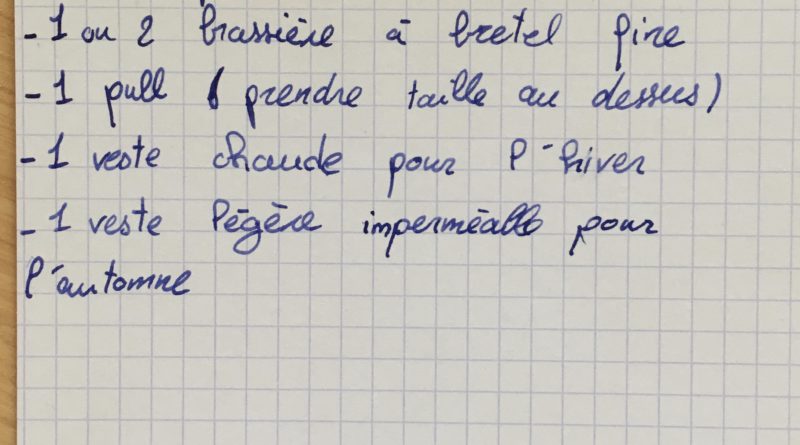 - 1 ou 2 brassière à bretel fine
- 1 pull (prendre taille au dessus)
- 1 veste chaude pour l'hiver
- 1 veste légère imperméable pour
l'automne